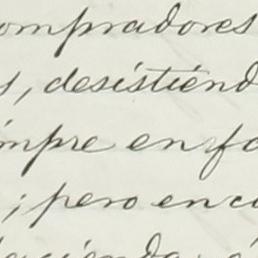 ompradores
s, desistiénd
mpre en fa
; pero en ca
acienda á